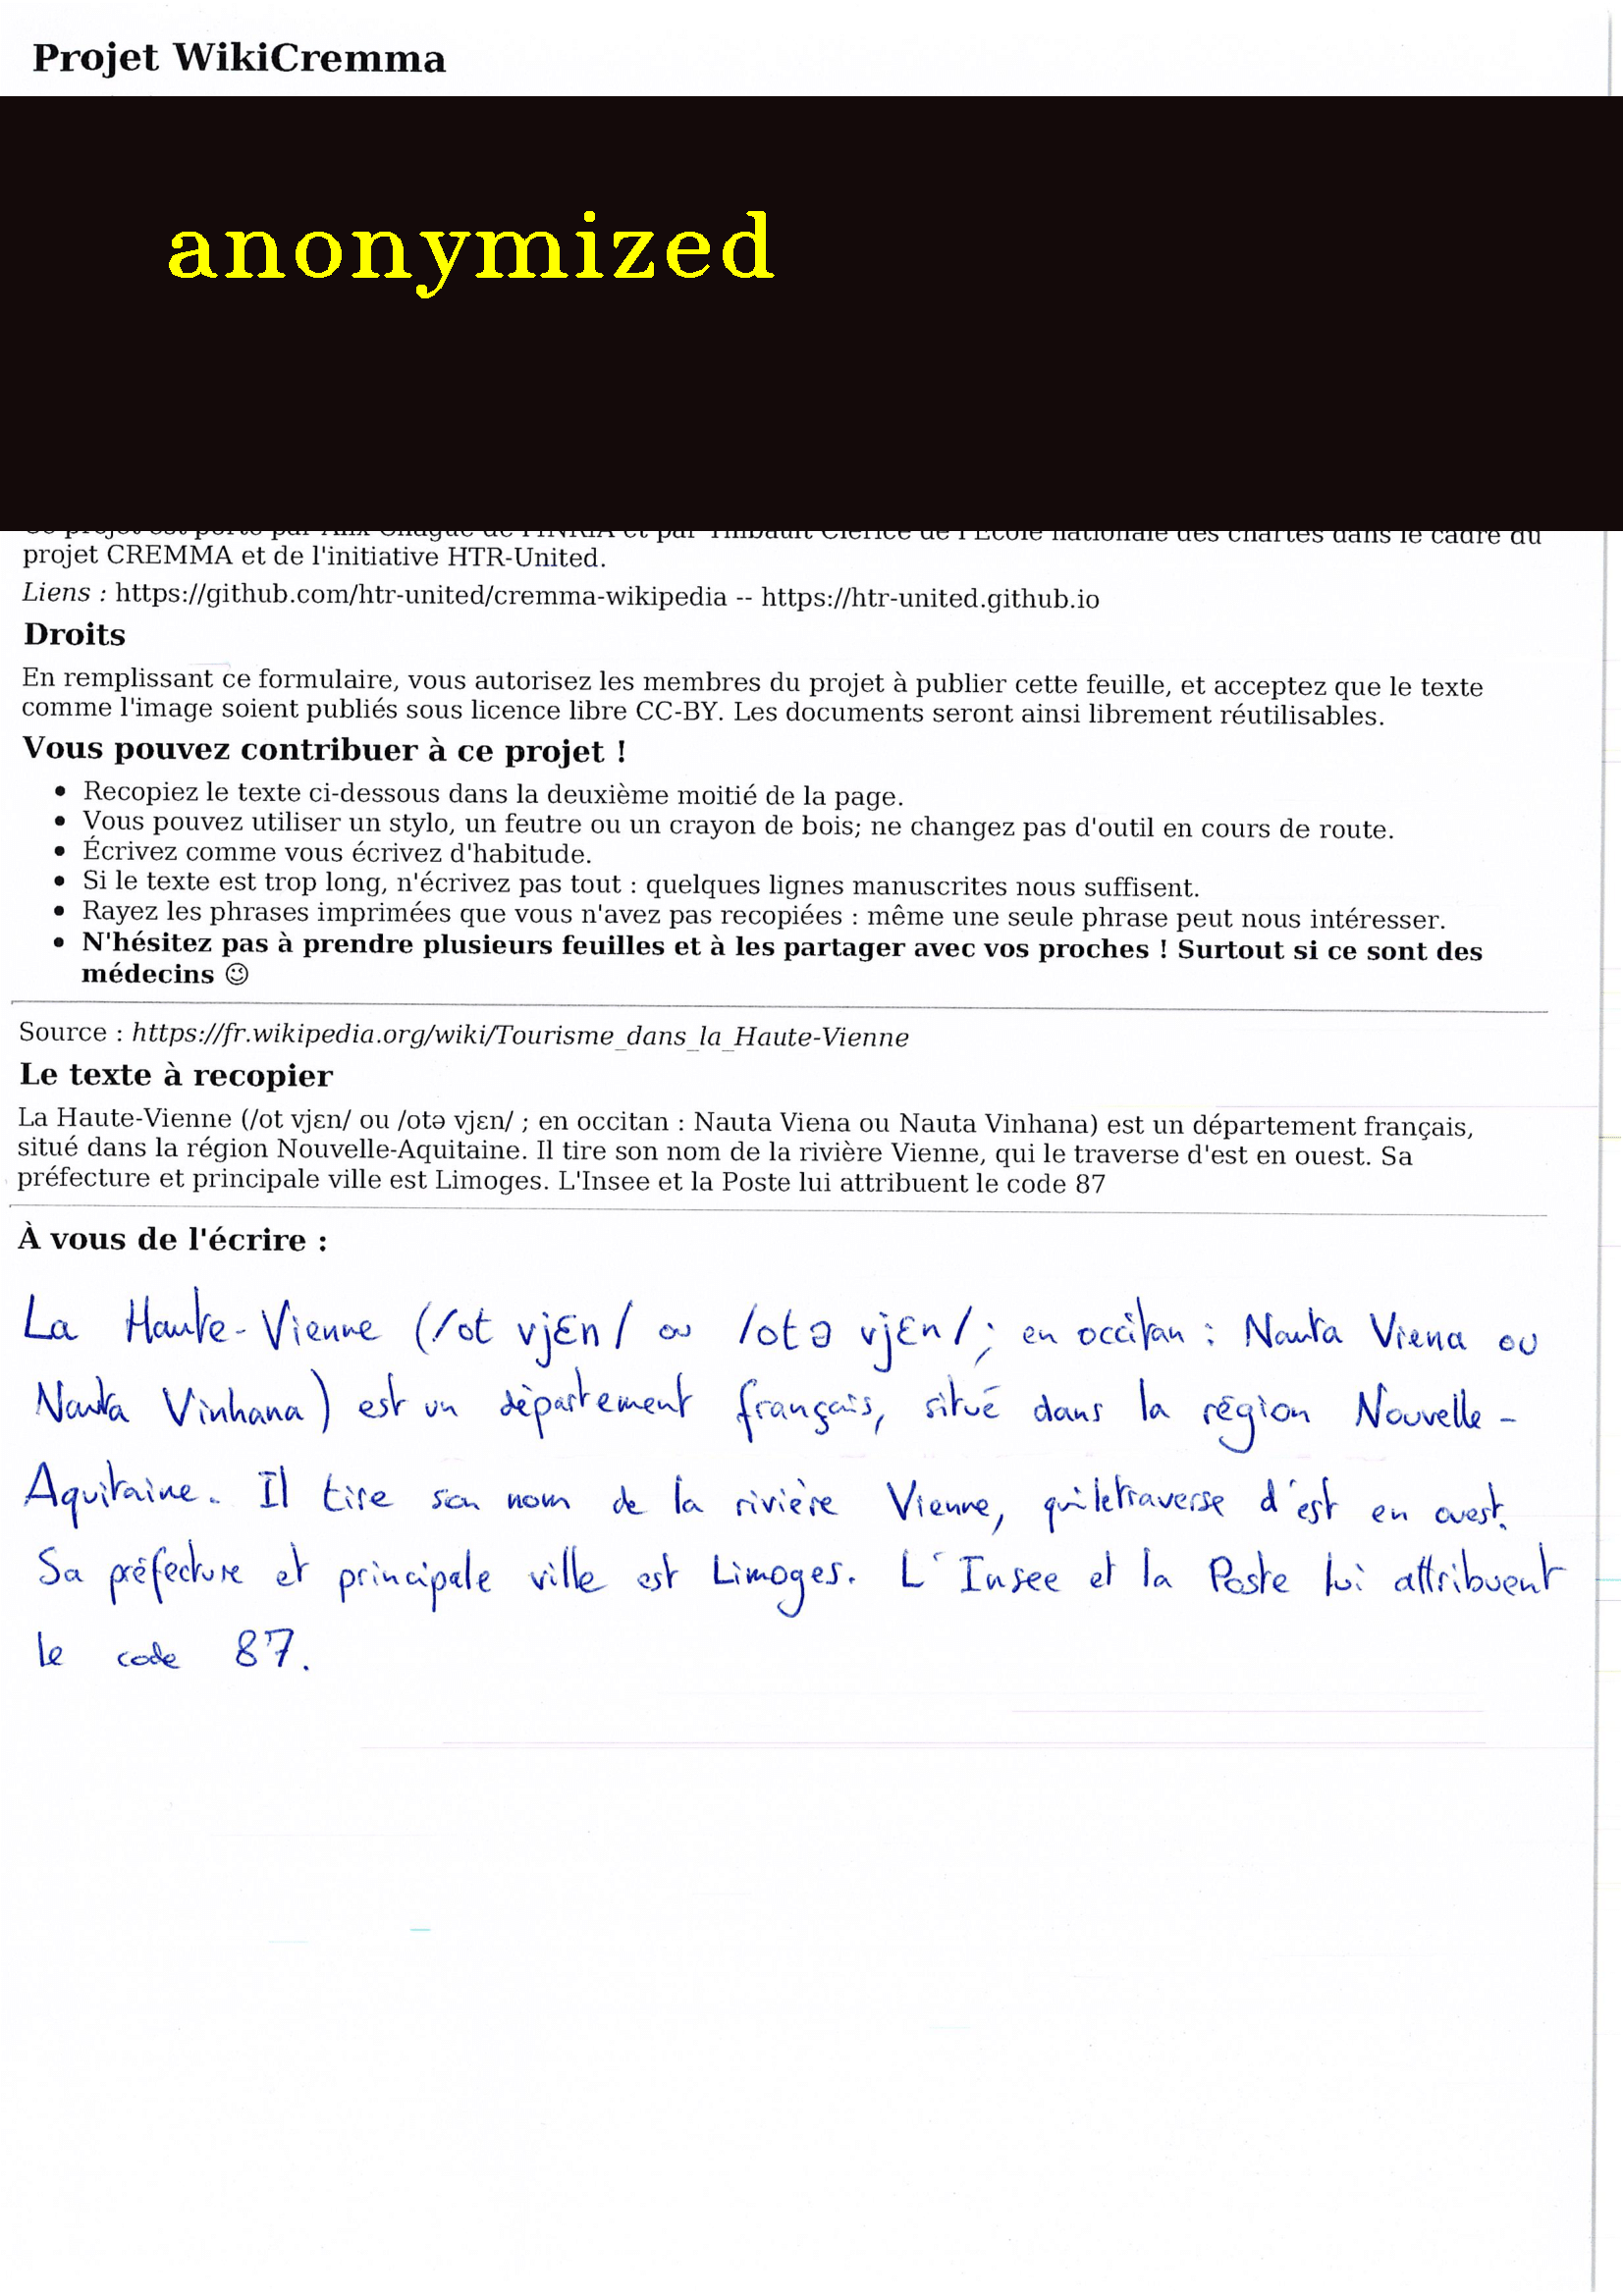 Projet WikiCremma
anonymized
Ce projet est porté par Alix Chagué de l'INRIA et par Thibault Clérice de l'École nationale des chartes dans le cadre du
projet CREMMA et de l'initiative HTR-United.
Liens : https://github.com/htr-united/cremma-wikipedia -- https://htr-united.github.io
Droits
En remplissant ce formulaire, vous autorisez les membres du projet à publier cette feuille, et acceptez que le texte
comme l'image soient publiés sous licence libre CC-BY. Les documents seront ainsi librement réutilisables.
Vous pouvez contribuer à ce projet !
• Recopiez le texte ci-dessous dans la deuxième moitié de la page.
• Vous pouvez utiliser un stylo, un feutre ou un crayon de bois; ne changez pas d'outil en cours de route.
• Écrivez comme vous écrivez d'habitude.
• Si le texte est trop long, n'écrivez pas tout : quelques lignes manuscrites nous suffisent.
• Rayez les phrases imprimées que vous n'avez pas recopiées : même une seule phrase peut nous intéresser.
• N'hésitez pas à prendre plusieurs feuilles et à les partager avec vos proches ! Surtout si ce sont des
médecins 😉
Source : https://fr.wikipedia.org/wiki/Tourisme_dans_la_Haute-Vienne
Le texte à recopier
La Haute-Vienne (/ot vjɛn/ ou /otə vjɛn/ ; en occitan : Nauta Viena ou Nauta Vinhana) est un département français,
situé dans la région Nouvelle-Aquitaine. Il tire son nom de la rivière Vienne, qui le traverse d'est en ouest. Sa
préfecture et principale ville est Limoges. L'Insee et la Poste lui attribuent le code 87
À vous de l'écrire :
La Haute-Vienne (/ot vjɛn/ ou /otə vjɛn/; en occitan : Nauta Viena ou
Nauta Vinhana) est un département français, situé dans la région Nouvelle-
Aquitaine. Il tire son nom de la rivière Vienne, qui le traverse d'est en ouest.
Sa préfecture et principale ville est Limoges. L'Insee et la Poste lui attribuent
le code 87.